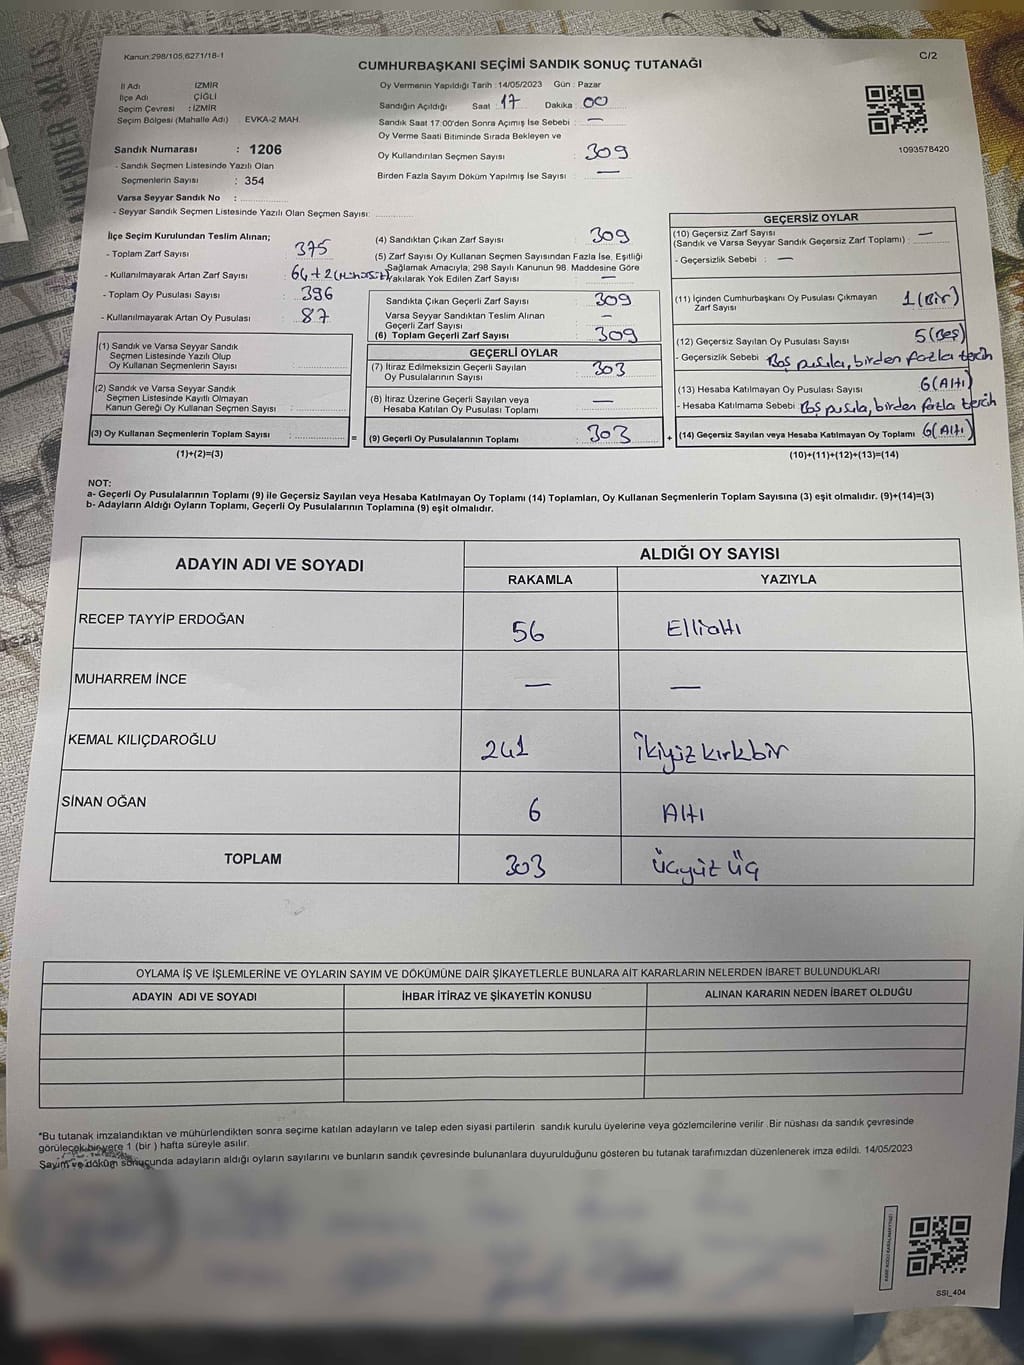 Kanun:298/105,6271/18-1
C/2
CUMHURBAŞKANI SEÇİMİ SANDIK SONUÇ TUTANAĞI
İl Adı İZMİR
İlçe Adı ÇİĞLİ
Seçim Çevresi : İZMİR
Seçim Bölgesi (Mahalle Adı) EVKA-2 MAH.
Sandık Numarası : 1206
- Sandık Seçmen Listesinde Yazılı Olan
Seçmenlerin Sayısı : 354
Varsa Seyyar Sandık No :
- Seyyar Sandık Seçmen Listesinde Yazılı Olan Seçmen Sayısı:
Oy Vermenin Yapıldığı Tarih :14/05/2023 Gün : Pazar
Sandığın Açıldığı Saat 17 Dakika 00
Sandık Saat 17:00'den Sonra Açımış İse Sebebi : —
Oy Verme Saati Bitiminde Sırada Bekleyen ve
Oy Kullandırılan Seçmen Sayısı : 309
Birden Fazla Sayım Döküm Yapılmış İse Sayısı : —
1093578420
İlçe Seçim Kurulundan Teslim Alınan;
- Toplam Zarf Sayısı : 375
- Kullanılmayarak Artan Zarf Sayısı : 64+2
- Toplam Oy Pusulası Sayısı : 396
- Kullanılmayarak Artan Oy Pusulası : 87
(1) Sandık ve Varsa Seyyar Sandık
Seçmen Listesinde Yazılı Olup
Oy Kullanan Seçmenlerin Sayısı :
(2) Sandık ve Varsa Seyyar Sandık
Seçmen Listesinde Kayıtlı Olmayan
Kanun Gereği Oy Kullanan Seçmen Sayısı :
(3) Oy Kullanan Seçmenlerin Toplam Sayısı : =
(1)+(2)=(3)
(4) Sandıktan Çıkan Zarf Sayısı : 309
(5) Zarf Sayısı Oy Kullanan Seçmen Sayısından Fazla İse, Eşitliği
Sağlamak Amacıyla; 298 Sayılı Kanunun 98. Maddesine Göre
Yakılarak Yok Edilen Zarf Sayısı : —
Sandıkta Çıkan Geçerli Zarf Sayısı : 309
Varsa Seyyar Sandıktan Teslim Alınan
Geçerli Zarf Sayısı : —
(6) Toplam Geçerli Zarf Sayısı : 309
GEÇERLİ OYLAR
(7) İtiraz Edilmeksizin Geçerli Sayılan
Oy Pusulalarının Sayısı : 303
(8) İtiraz Üzerine Geçerli Sayılan veya
Hesaba Katılan Oy Pusulası Toplamı : —
(9) Geçerli Oy Pusulalarının Toplamı : 303 +
GEÇERSİZ OYLAR
(10) Geçersiz Zarf Sayısı
(Sandık ve Varsa Seyyar Sandık Geçersiz Zarf Toplamı) : —
- Geçersizlik Sebebi : —
(11) İçinden Cumhurbaşkanı Oy Pusulası Çıkmayan
Zarf Sayısı 1 (Bir)
(12) Geçersiz Sayılan Oy Pusulası Sayısı 5 (Beş)
- Geçersizlik Sebebi Boş pusula, birden fazla tercih
(13) Hesaba Katılmayan Oy Pusulası Sayısı 6 (Altı)
- Hesaba Katılmama Sebebi Boş pusula, birden fazla tercih
(14) Geçersiz Sayılan veya Hesaba Katılmayan Oy Toplamı 6 (Altı)
(10)+(11)+(12)+(13)=(14)
NOT:
a- Geçerli Oy Pusulalarının Toplamı (9) ile Geçersiz Sayılan veya Hesaba Katılmayan Oy Toplamı (14) Toplamları, Oy Kullanan Seçmenlerin Toplam Sayısına (3) eşit olmalıdır. (9)+(14)=(3)
b- Adayların Aldığı Oyların Toplamı, Geçerli Oy Pusulalarının Toplamına (9) eşit olmalıdır.
ADAYIN ADI VE SOYADI
ALDIĞI OY SAYISI
RAKAMLA YAZIYLA
RECEP TAYYİP ERDOĞAN 56 Elliakı
MUHARREM İNCE — —
KEMAL KILIÇDAROĞLU 241 İkiyüz kırkbir
SİNAN OĞAN 6 Altı
TOPLAM 303 üçyüz üç
OYLAMA İŞ VE İŞLEMLERİNE VE OYLARIN SAYIM VE DÖKÜMÜNE DAİR ŞİKAYETLERLE BUNLARA AİT KARARLARIN NELERDEN İBARET BULUNDUKLARI
ADAYIN ADI VE SOYADI İHBAR İTİRAZ VE ŞİKAYETİN KONUSU ALINAN KARARIN NEDEN İBARET OLDUĞU
*Bu tutanak imzalandıktan ve mühürlendikten sonra seçime katılan adayların ve talep eden siyasi partilerin sandık kurulu üyelerine veya gözlemcilerine verilir .Bir nüshası da sandık çevresinde
görülecek bir yere 1 (bir ) hafta süreyle asılır.
Sayım ve döküm sonucunda adayların aldığı oyların sayılarını ve bunların sandık çevresinde bulunanlara duyurulduğunu gösteren bu tutanak tarafımızdan düzenlenerek imza edildi. 14/05/2023
SSI_404